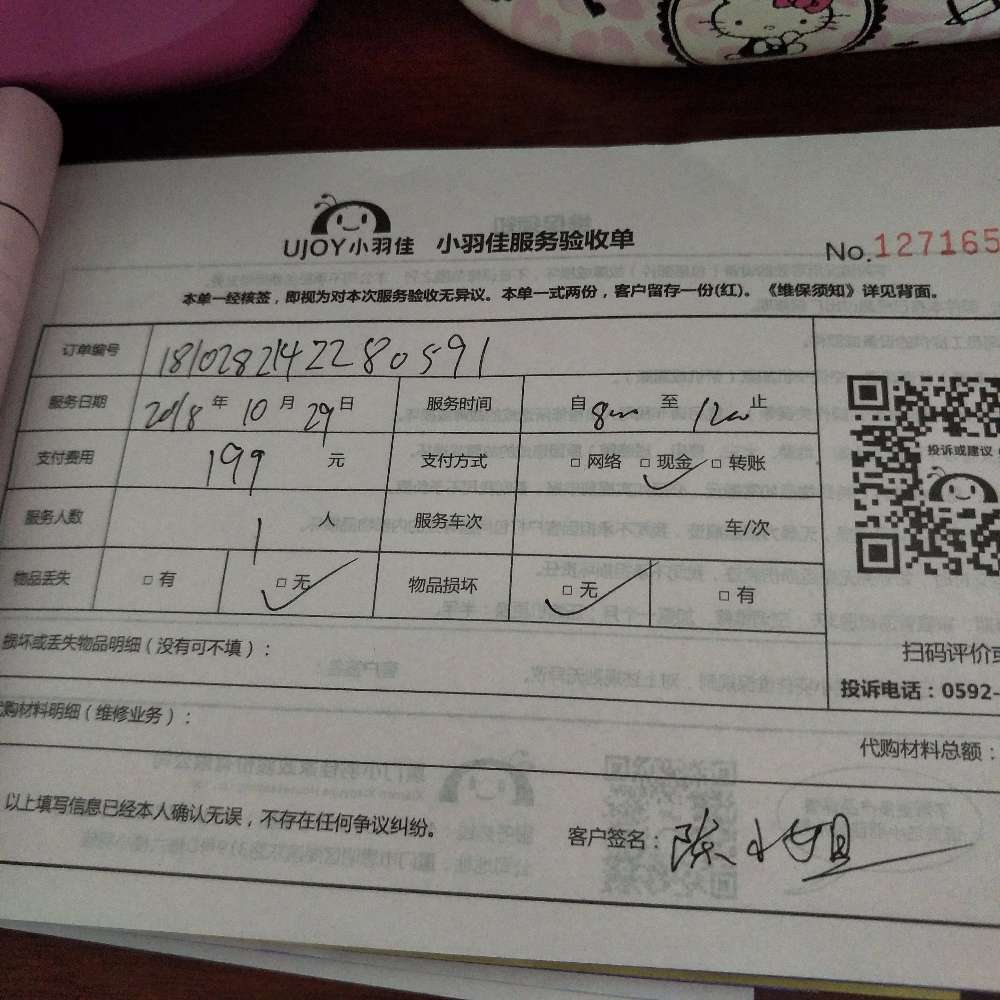 UJOY小羽佳 小羽佳服务验收单
No.127165
本单一经核签，即视为对本次服务验收无异议。本单一式两份，客户留存一份(红)。《维保须知》详见背面。
订单编号 18102821422280591
服务日期 2018年10月29日 服务时间 自800至1200止
支付费用 199元 支付方式 □网络 □现金 □转账
投诉或建议
服务人数 1人 服务车次 车/次
物品丢失 □有 □无 物品损坏 □无 □有
损坏或丢失物品明细（没有可不填）：
扫码评价或
投诉电话：0592-
代购材料明细（维修业务）：
代购材料总额：
以上填写信息已经本人确认无误，不存在任何争议纠纷。
客户签名：陈小姐